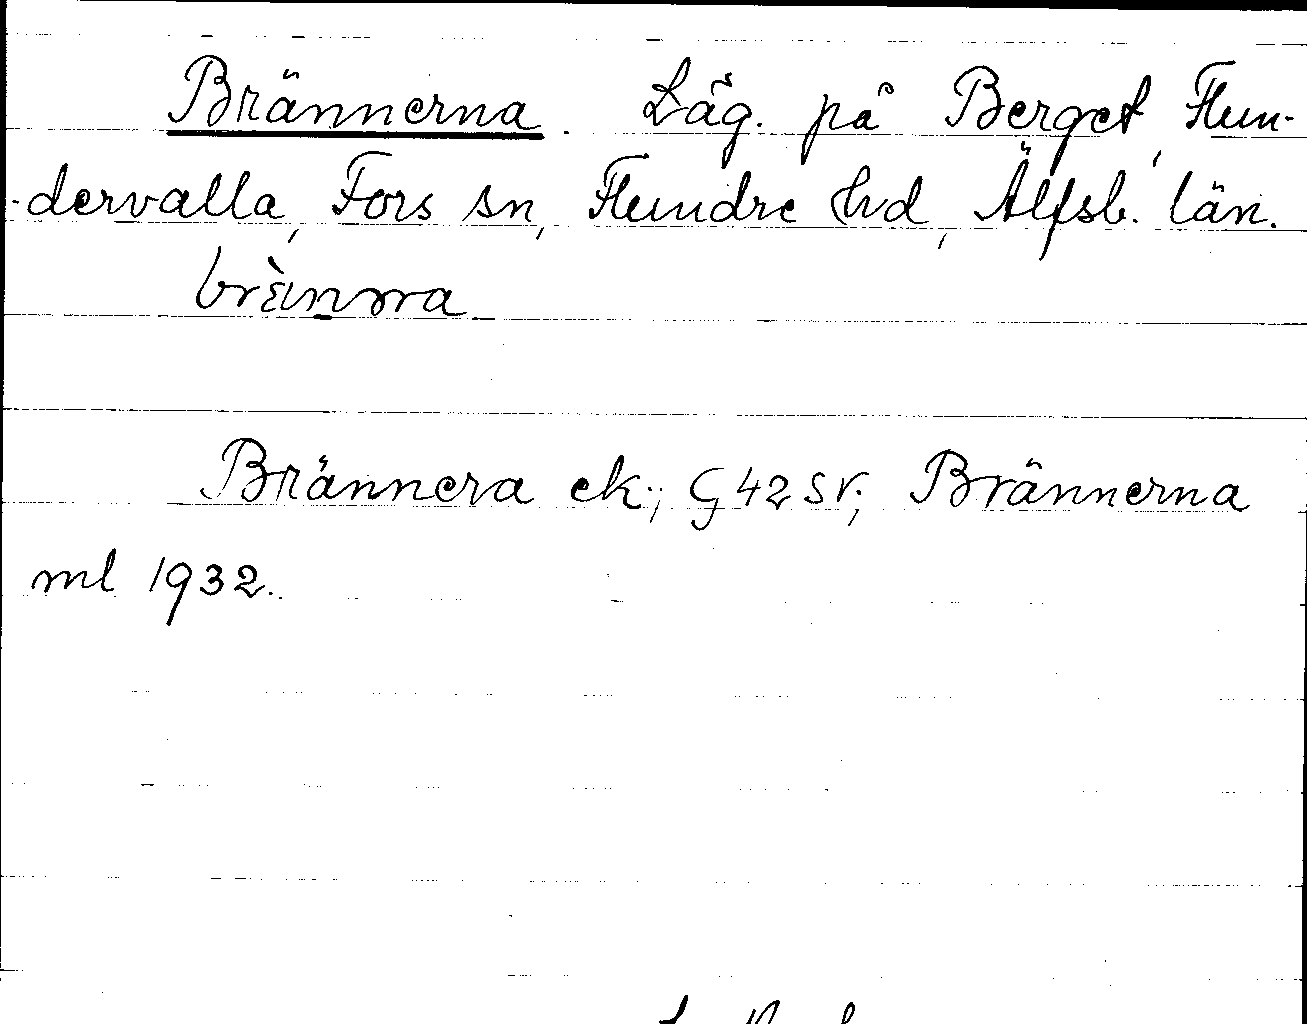 Brännerna. Läg. på Berget, Flun-
dervalla, Fors sn, Flundre hd, Älfsb. län.
Brännera ek.; G 42 SV; Brännerna
ml 1932.